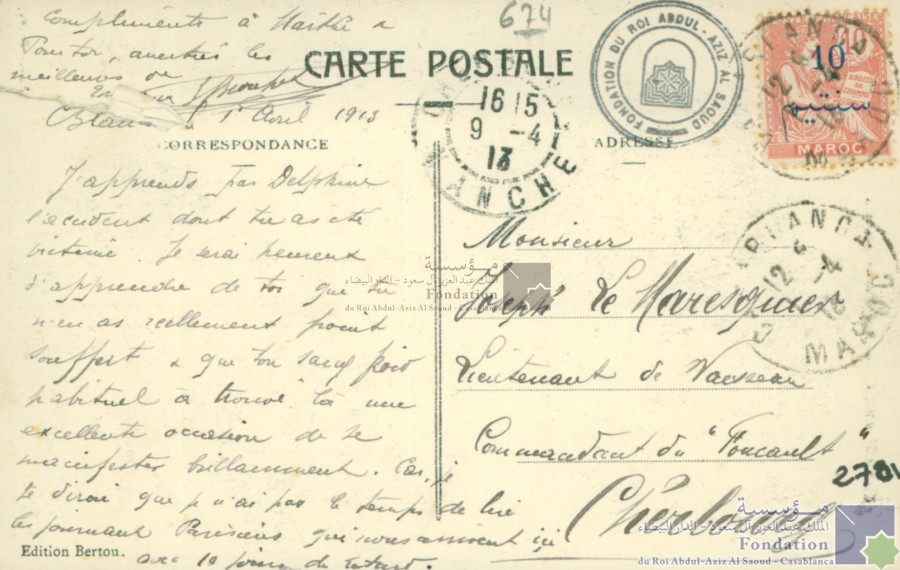 Compliments à Marthe &
674
meilleurs de
1er Avril 1913
CARTE POSTALE
CORRESPONDANCE
ADRESSE
J'apprends par Delphine
l'accident dont tu as été
victime. Je serai heureux
d'apprendre de toi que tu
n'en as réellement point
souffert & que ton sang froid
habituel a trouvé là une
excellente occasion de se
manifester brillamment. Car, je
te dirai que je n'ai pas le temps de lire
les journaux Parisiens que nous arrivent ici
avec 10 jours de retard.
Edition Bertou.
FONDATION DU ROI ABDUL-AZIZ AL SAOUD
16 15
9 - 4
13
MANCHE
10
سنتيم
MAROC
CASABLANCA
12 4
MAROC
CASABLANCA
12 4
-4
13
MAROC
Monsieur
Joseph Le Maresquier
Lieutenant de Vaisseau
Commandant du "Foucault"
Cherbourg
2781
مؤسسة
الملك عبد العزيز آل سعود - الدار البيضاء
Fondation
du Roi Abdul-Aziz Al Saoud - Casablanca
مؤسسة
الملك عبد العزيز آل سعود - الدار البيضاء
Fondation
du Roi Abdul-Aziz Al Saoud - Casablanca